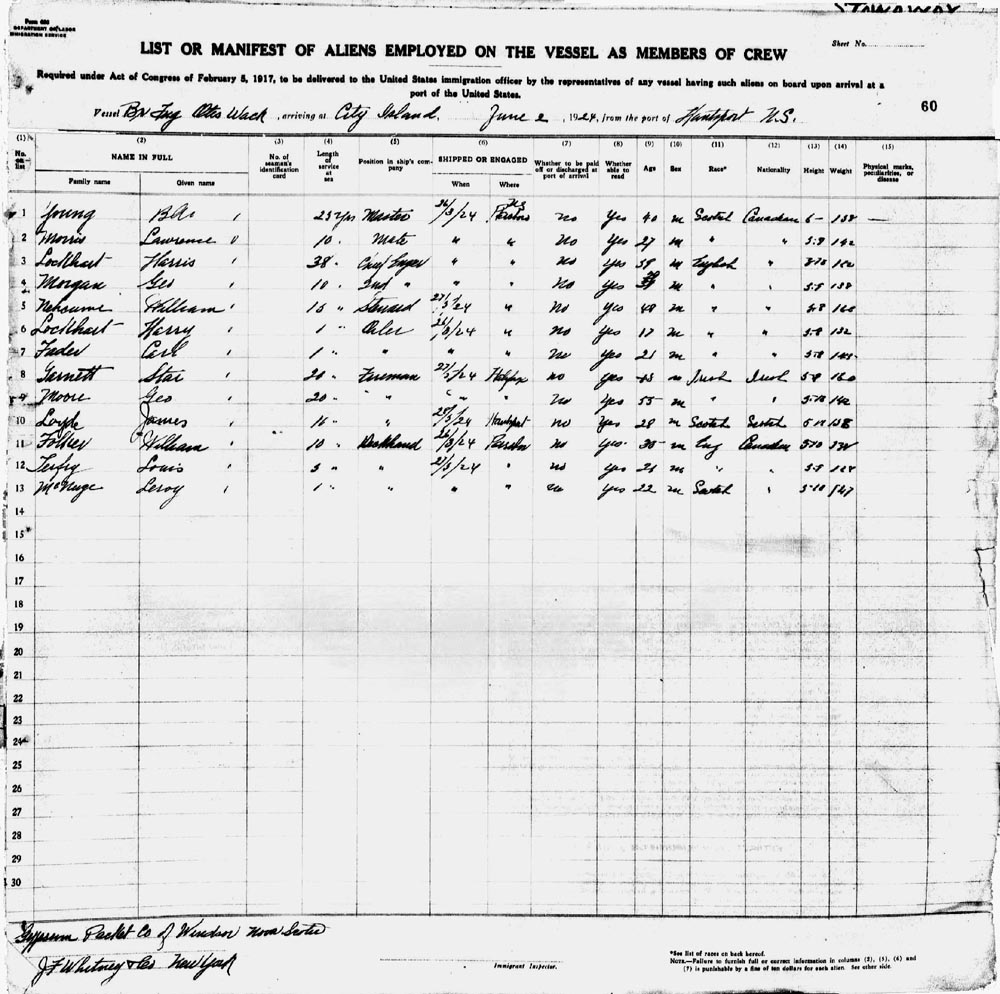 Form 680
DEPARTMENT OF LABOR
IMMIGRATION SERVICE
STOWAWAY
Sheet No.
LIST OR MANIFEST OF ALIENS EMPLOYED ON THE VESSEL AS MEMBERS OF CREW
Required under Act of Congress of February 5, 1917, to be delivered to the United States immigration officer by the representatives of any vessel having such aliens on board upon arrival at a
port of the United States.
60
Vessel Br Tug Otis Wack, arriving at City Island, June 2, 1924, from the port of Hantsport N.S.
(1) (2) (3) (4) (5) (6) (7) (8) (9) (10) (11) (12) (13) (14) (15)
No. on list NAME IN FULL Family name Given name No. of seaman's identification card Length of service at sea Position in ship's company SHIPPED OR ENGAGED When Where Whether to be paid off or discharged at port of arrival Whether able to read Age Sex Race* Nationality Height Weight Physical marks, peculiarities, or disease
1 Young 23 yrs Master /3/24 N.S. no Yes 40 m Scotch Canadian 6 - 138 —
2 Morris Lawrence 10 " Mate " " No Yes 27 m " " 5-9 142
3 Lockhart Harris 38 " Chief " " No Yes 59 m English "
4 Morgan Geo 10 " 2nd " " " No Yes m " " 5-5 138
5 William 15 " Steward 27/5/24 " No Yes 48 m " " 5-8 160
6 Lockhart Harry 1 " Oiler 26/5/24 " no Yes 17 m " " 5-8 132
7 Fader Carl 1 " " " " No Yes 21 m " " 5-8
8 Garnett Star 20 " Fireman 27/5/24 Halifax no Yes m Irish Irish 5-8 160
9 Moore Geo 20 " " " " No Yes 55 m " " 5-10 142
10 James " " 28/5/24 Hantsport no Yes 28 m Scotch Scotch 138
11 William 10 " Deckhand 26/5/24 no Yes 35 m Eng Canadian 5-10
12 Louis 3 " " 27/5/24 " no Yes 21 m " " 5-8
13 Leroy 1 " " " " no Yes 22 m Scotch " 5-10 147
14
15
16
17
18
19
20
21
22
23
24
25
26
27
28
29
30
Gypsum Packet Co of Windsor Nova Scotia
J F Whitney & Co New York
Immigrant Inspector.
*See list of races on back hereof.
NOTE.—Failure to furnish full or correct information in columns (2), (5), (6) and
(7) is punishable by a fine of ten dollars for each alien. See other side.